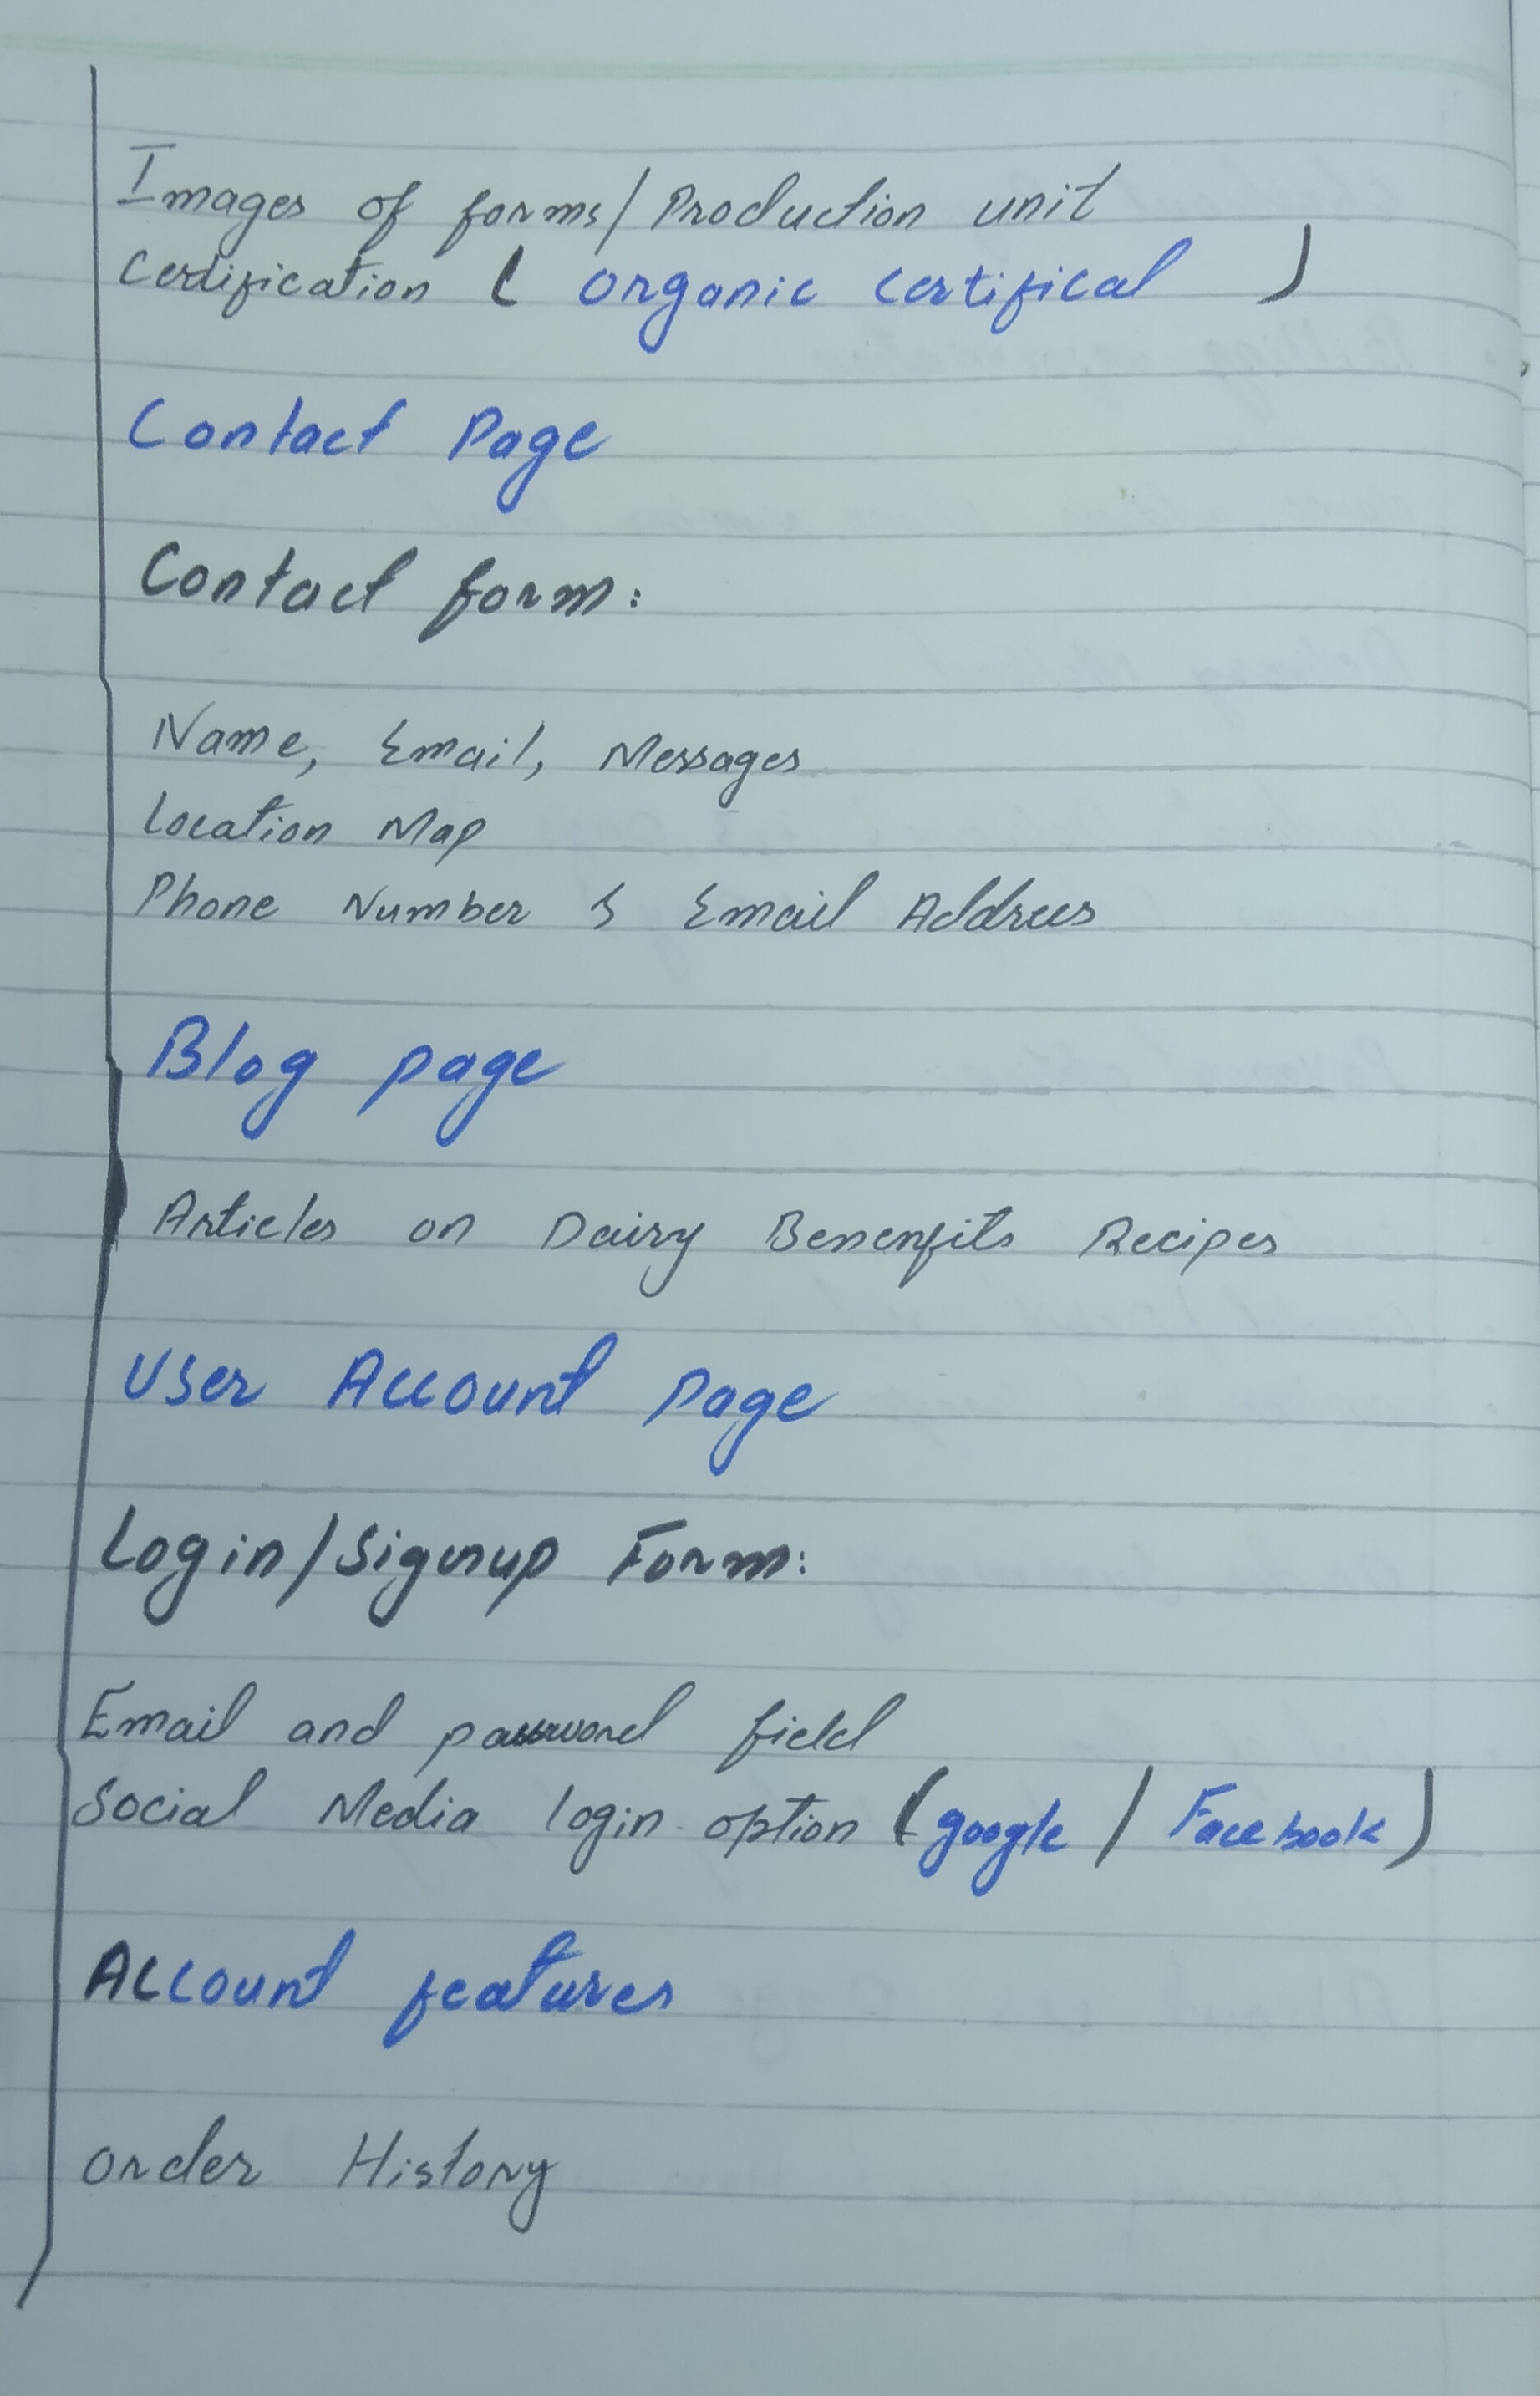 Images of forms/Production unit
Certification ( organic certifical )
Contact Page
Contact form:
Name, Email, Messages
Location Map
Phone Number & Email Address
Blog page
Articles on Dairy Benenfits Recipes
User Account Page
Login/Signup Form:
Email and password field
Social Media login option (google / Facebook)
Account features
order History